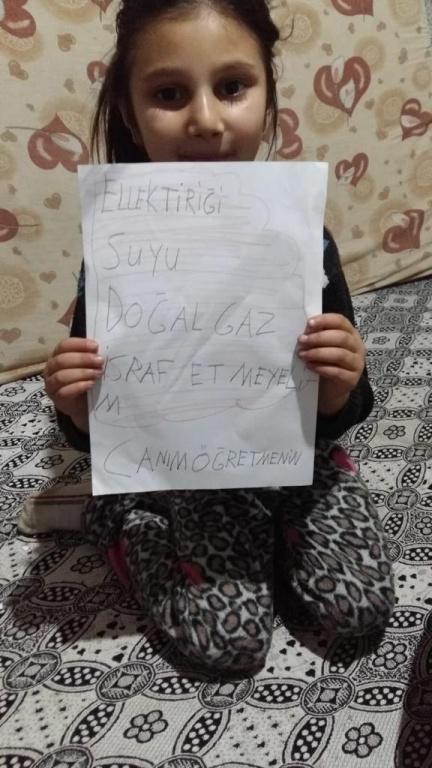 ELLEKTİRİĞİ
SUYU
DOĞAL GAZ
İSRAF ET MEYELİ
M
CANIMÖĞRETMENİM